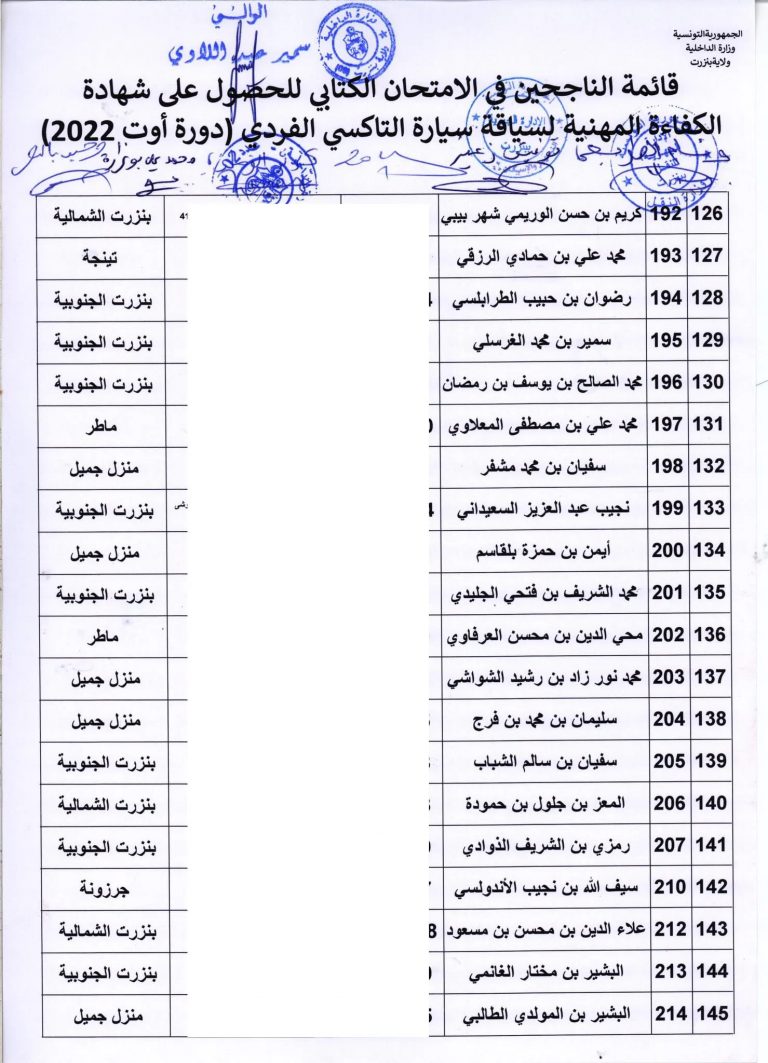 الجمهورية التونسية
وزارة الداخلية
ولاية بنزرت
الوالي
سمير عبد اللاوي
قائمة الناجحين في الامتحان الكتابي للحصول على شهادة
الكفاءة المهنية لسياقة سيارة التاكسي الفردي (دورة أوت 2022)
126 192 كريم بن حسن الوريمي شهر بيبي 41 بنزرت الشمالية
127 193 محمد علي بن حمادي الرزقي تينجة
128 194 رضوان بن حبيب الطرابلسي 4 بنزرت الجنوبية
129 195 سمير بن محمد الغرسلي بنزرت الجنوبية
130 196 محمد الصالح بن يوسف بن رمضان بنزرت الجنوبية
131 197 محمد علي بن مصطفى المعلاوي ماطر
132 198 سفيان بن محمد مشفر منزل جميل
133 199 نجيب عبد العزيز السعيداني 4 بنزرت الجنوبية
134 200 أيمن بن حمزة بلقاسم منزل جميل
135 201 محمد الشريف بن فتحي الجليدي بنزرت الجنوبية
136 202 محي الدين بن محسن العرفاوي ماطر
137 203 محمد نور زاد بن رشيد الشواشي منزل جميل
138 204 سليمان بن محمد بن فرج منزل جميل
139 205 سفيان بن سالم الشباب بنزرت الجنوبية
140 206 المعز بن جلول بن حمودة بنزرت الشمالية
141 207 رمزي بن الشريف الذوادي بنزرت الجنوبية
142 210 سيف الله بن نجيب الأندولسي جرزونة
143 212 علاء الدين بن محسن بن مسعود 8 بنزرت الشمالية
144 213 البشير بن مختار الغانمي بنزرت الجنوبية
145 214 البشير بن المولدي الطالبي منزل جميل